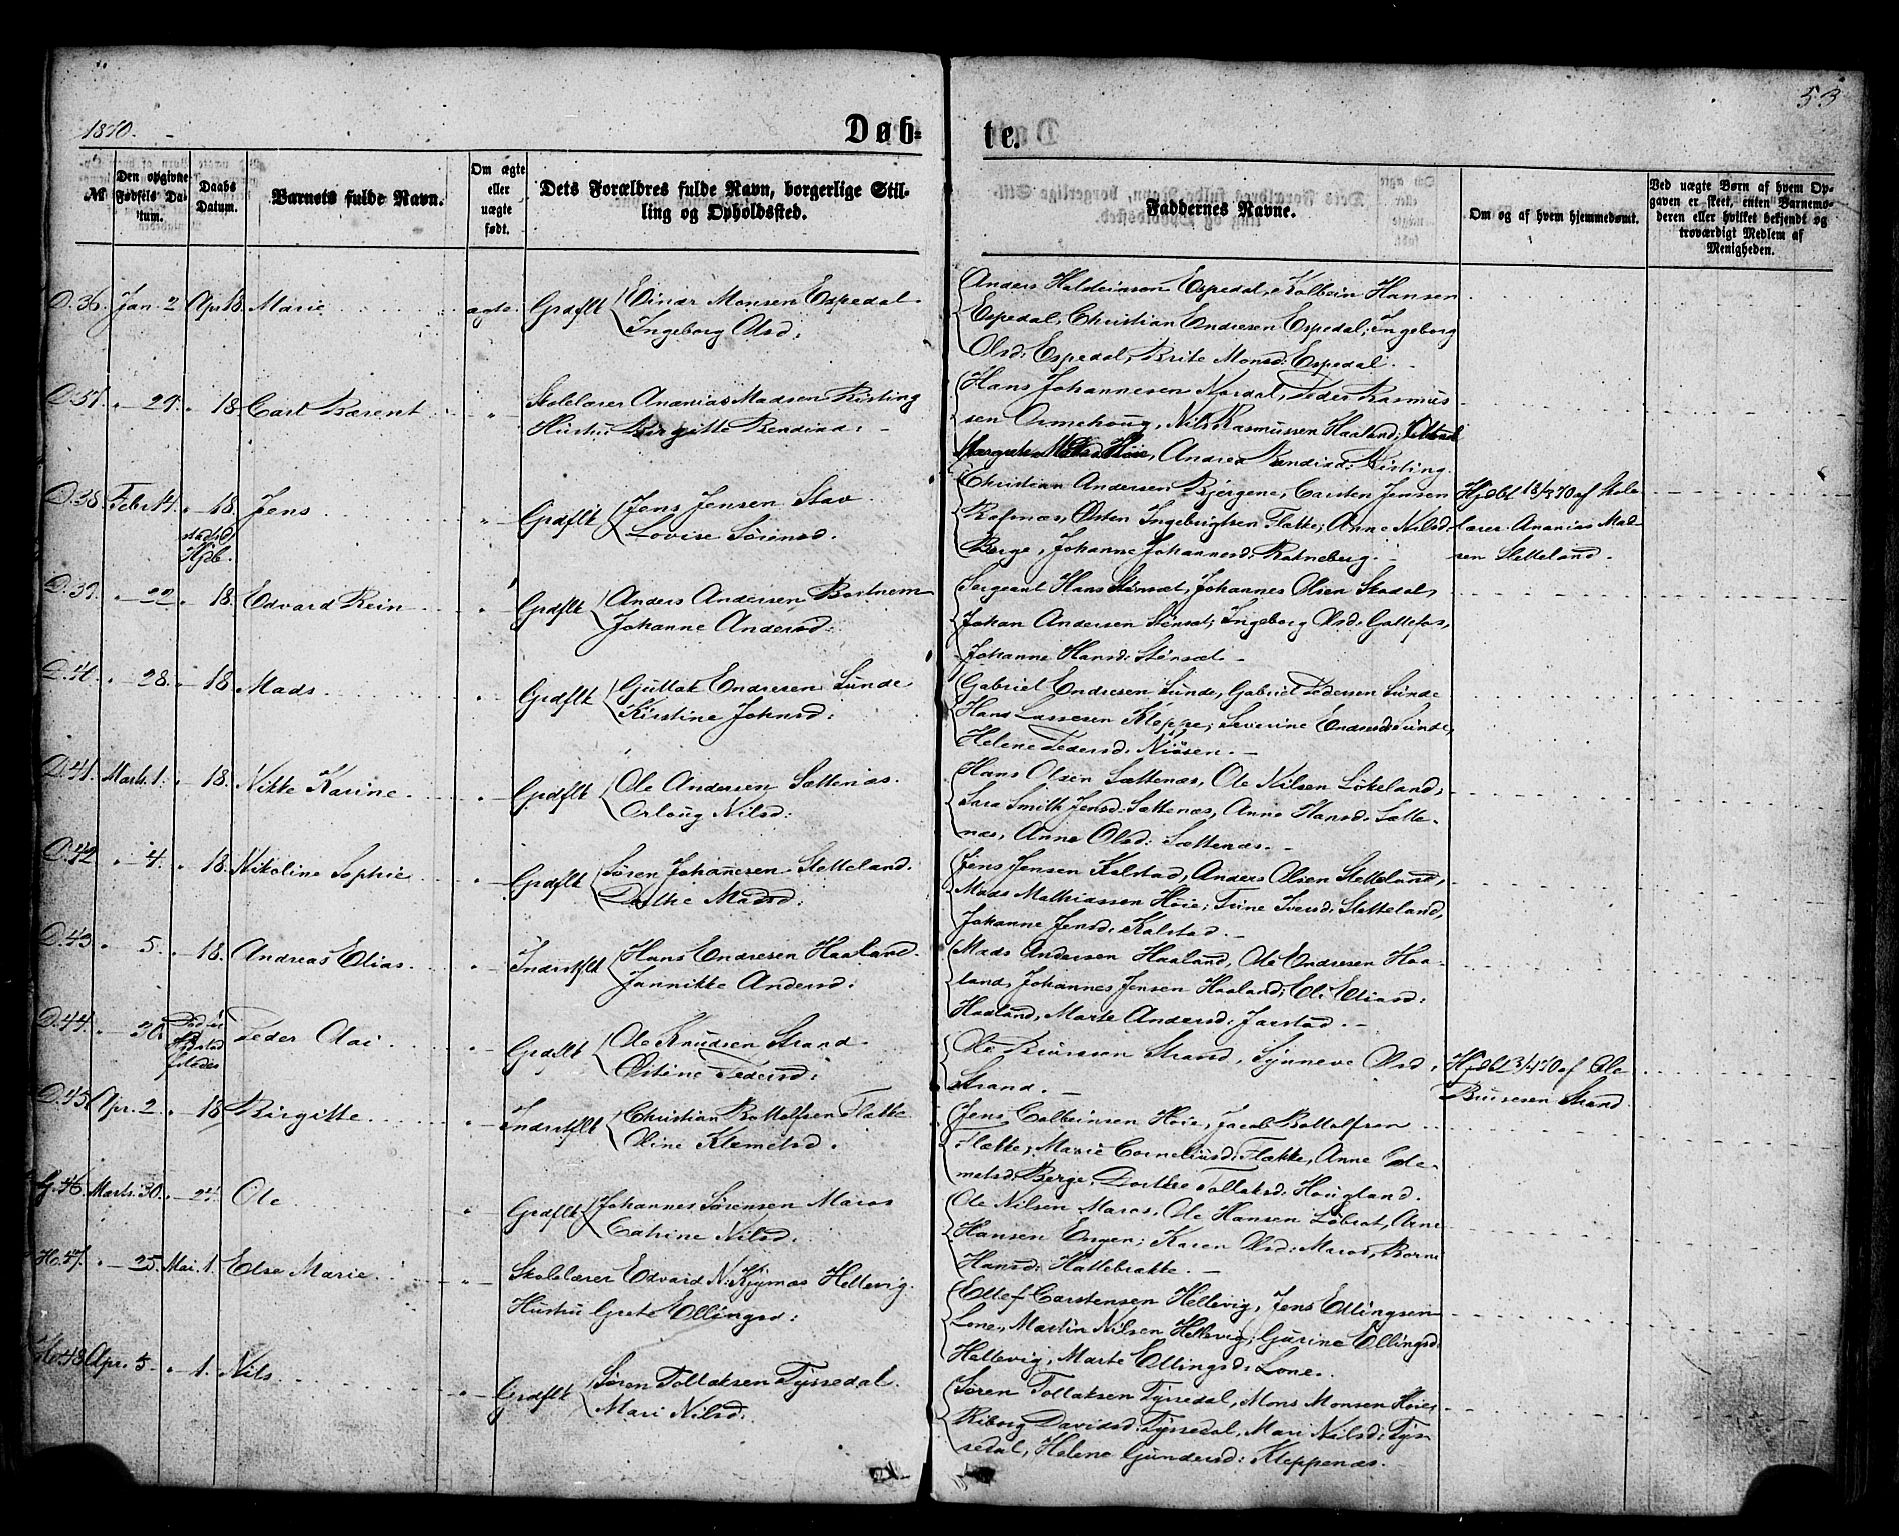 1870.
Døb-
te.
53
№
Den opgivne Fødsels Datum.
Daabs Datum.
Barnets fulde Navn.
Om ægte eller uægte født.
Dets Forældres fulde Navn, borgerlige Stilling og Opholdssted.
Faddernes Navne.
Om og af hvem hjemmedøbt.
Ved uægte Børn af hvem Opgaven er skeet, enten Barnemoderen eller hvilket bekjendt og troværdigt Medlem af Menigheden.
D. 36. Jan. 2. Apr. 18. Marie ægte. Grdflt Einar Monsen Espedal
Ingeborg Olsd:
Anders Haldeinson Espedal, Kolbein Hansen
Espedal, Christian Endresen Espedal; Ingeborg
Olsd: Espedal, Brite Monsd: Espedal.
D. 37. " 29. " 18. Carl Bærent " Skolelærer Ananias Madsen Risting
Hustru Birgitte Bendixd:
Hans Johannesen Nordal, Peder Rasmus
sen Ormehoug, Nils Rasmussen Haaland;
Andrea Risting.
D. 38. Febr. 14. " 18. Jens " Grdflt Jens Jensen Stav
stadf. Hjdb.
Lovise Sørensd.
Christian Andersen Bjergene, Carsten Jensen
Rafnæs, Østen Ingebrigtsen Flatke; Anne Nilsd:
Berge, Johanne Johannesd: Ratneberg.
Hjdbt 18/3 70 af Skole
lærer Ananias Mad
sen Sletteland.
D. 39. " 22 " 18. Edvard Rein " Grdflt Anders Andersen Bortnem
Johanne Andersd:
Sergeant Hans Stensæt, Johannes Olsen Skodal,
Johan Andersen Stensæt; Ingeborg Olsd:
Johanne Hansd: Stensæt.
D. 40. " 28. " 18 Mads. " Grdflt Guttak Endresen Sunde
Kirstine Johnsd:
Gabriel Endresen Sunde, Gabriel Pedersen Sunde
Hans Lassesen Kleppe; Severine Endresd: Sunde,
Helene Pedersd: Niøsen.
D. 41. Marts. 1. " 18. Nikke Karine. " Grdflt Ole Andersen Sættenæs.
Orloug Nilsd:
Hans Olsen Sættenæs, Ole Nilsen Løkeland;
Sara Smith Jensd: Sættenæs, Anne Hansd: Sætte-
næs, Anne Olsd: Sættenæs.
D. 42 " 4. " 18. Nikoline Sophie " Grdflt Søren Johannesen Sletteland.
Dorthe Madsd:
Jens Jensen Kalstad, Anders Olsen Sletteland,
Mads Mathiassen Høie; Trine Iversd: Sletteland,
Johanne Jensd: Kalstad.
D. 43 " 5. " 18. Andreas Elias. " Indrstflt Hans Endresen Haaland.
Jannikke Andersd:
Mads Andersen Haaland, Ole Endresen Haa-
land, Johannes Jensen Haaland; Eli Eliasd:
Haaland, Marte Andersd: Jarstad.
D. 44. " 30. Peder Olai " Grdflt Ole Knudsen Strand
Olstine Pedersd:
Ole Strand, Synneve Olsd.
Strand.
Hjdbt 3/4 70 af Ole
Strand.
D. 45. Apr. 2. " 18 Birgitte " Indrstflt Christian Bottolfsen Flatke
Oline Klemetsd.
Jens Colbeinsen Høie, Jacob Bottolfsen
Flække; Marie Corneliusd: Flække, Anne Cle-
metsd: Berge, Dorthea Tollaksd: Hougland.
G. 46. Marts. 30. " 24. Ole " Grdflt Johannes Sørensen Maraas
Catrine Nilsd.
Ole Nilsen Maraas, Ole Hansen Løbraat, Arne
Hansen Engen; Karen Olsd: Maraas, Berne
Hansd: Hattebrække.
H. 47. " 25. Mai. 1. Else Marie. " Skolelærer Edvard N. Hellevig.
Hustru Grete Ellingsd:
Ellef Carstensen Hellevig, Jens Ellingsen
Lone, Martin Nilsen Hellevig; Gurine Ellingsd:
Hellevig, Marte Ellingsd: Lone.
H. 48 Apr. 5. " 1. Nils " Grdflt Søren Tollaksen Tyssedal.
Mari Nilsd:
Søren Tollaksen Tyssedal, Mons Monsen Høie;
Riborg Davidsd: Tyssedal, Mari Nilsd: Tys-
sedal, Helene Gundersd: Kleppenæs.